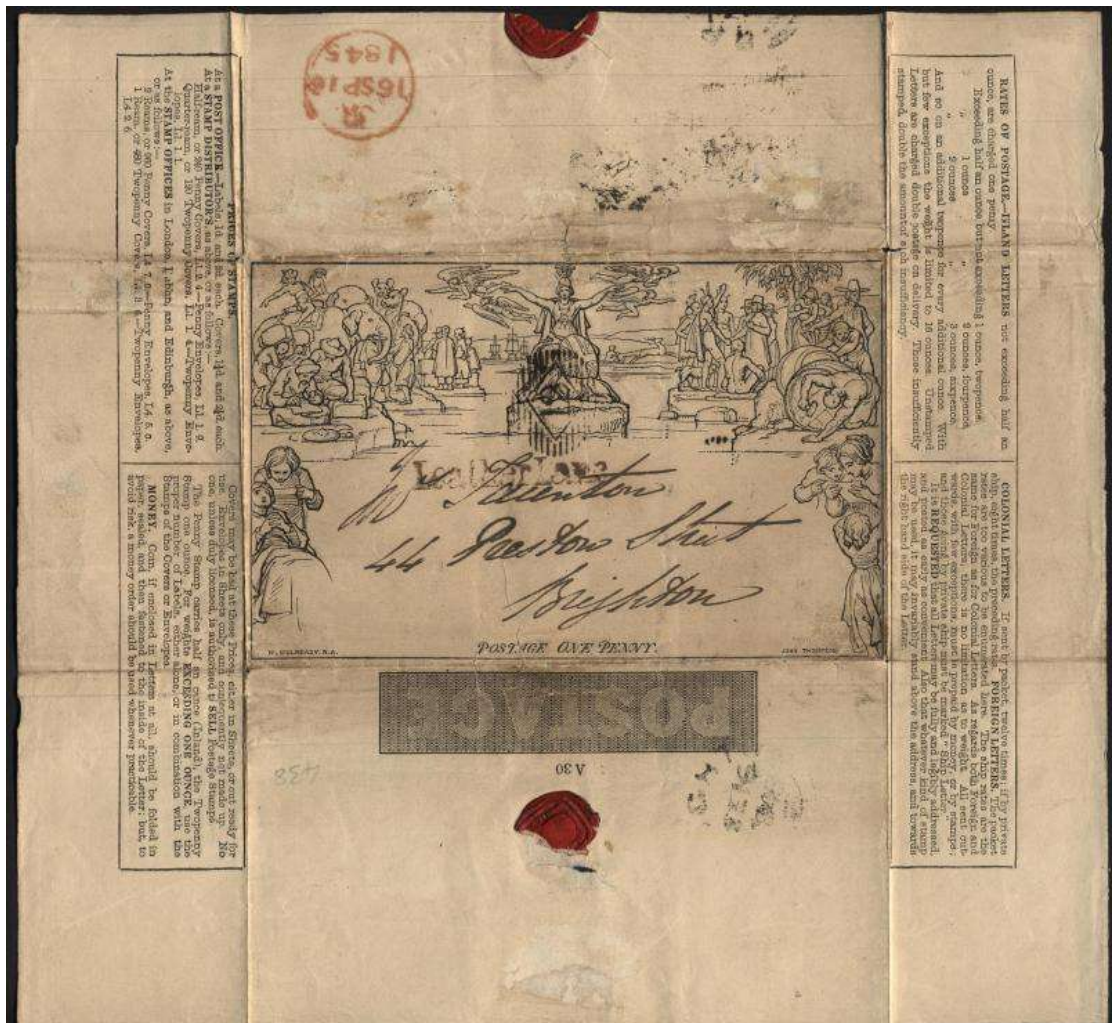 1845
16 SP 16
PRICES OF STAMPS.
At a POST OFFICE.—Labels, 1d. and 2d. each. Covers, 1¼d. and 2¼d. each.
At a STAMP DISTRIBUTOR'S, as above, or as follows:—
Half-ream, or 240 Penny Covers, L1. 2. 4.—Penny Envelopes, L1. 1. 9.
Quarter-ream, or 120 Twopenny Covers, L1. 1. 4.—Twopenny Enve-
lopes, L1. 1. 1.
At the STAMP OFFICES in London, Dublin, and Edinburgh, as above,
or as follows:—
2 Reams, or 960 Penny Covers, L4. 7. 0.—Penny Envelopes, L4. 5. 0.
1 Ream, or 480 Twopenny Covers, L4. 3. 6.—Twopenny Envelopes,
L4. 2. 6.
Covers may be had at these Prices, either in Sheets, or cut ready for
use. Envelopes in Sheets only, and consequently not made up. No
one, unless duly licensed, is authorised to SELL Postage Stamps.
The Penny Stamp carries half an ounce (Inland), the Twopenny
Stamp one ounce. For weights EXCEEDING ONE OUNCE, use the
proper number of Labels, either alone, or in combination with the
Stamps of the Covers or Envelopes.
MONEY. Coin, if enclosed in Letters at all, should be folded in
paper, sealed, and then fastened to the inside of the Letter; but, to
avoid risk, a money order should be used whenever practicable.
RATES OF POSTAGE.—INLAND LETTERS not exceeding half an
ounce, are charged one penny.
Exceeding half an ounce but not exceeding 1 ounce, twopence.
" 1 ounce " 2 ounces, fourpence.
" 2 ounces " 3 ounces, sixpence.
And so on, an additional twopence for every additional ounce. With
but few exceptions the weight is limited to 16 ounces. Unstamped
Letters are charged double postage on delivery. Those insufficiently
stamped, double the amount of such insufficiency.
COLONIAL LETTERS. If sent by packet, twelve times; if by private
ship, eight times, the preceding rates. FOREIGN LETTERS. The packet
rates are too various to be enumerated here. The ship rates are the
same for Foreign as for Colonial Letters. As regards both Foreign and
Colonial Letters, there is no limitation as to weight. All sent out-
wards, with few exceptions, must be prepaid by money, or by stamps;
and those going by private ship must be marked "Ship Letter."
It is REQUESTED that all Letters may be fully and legibly addressed,
and posted as early as convenient; Also that whatever kind of stamp
may be used, it may invariably stand above the address, and towards
the right hand side of the Letter.
44 Preston Street
Brighton
W. MULREADY, R.A.
POSTAGE ONE PENNY.
JOHN THOMPSON
POSTAGE
A 30